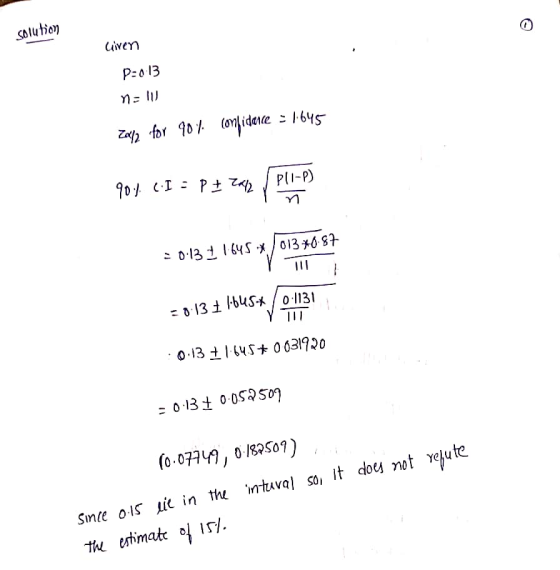 solution
①
Given
P=0.13
n= 111
Zα/2 for 90%. confidence = 1.645
90%. C.I = P ± Zα/2 √P(1-P)/n
= 0.13 ± 1.645 * √0.13*0.87/111
= 0.13 ± 1.645* √0.1131/111
0.13 ± 1.645 * 0.031920
= 0.13 ± 0.052509
(0.07749, 0.182509)
Since 0.15 lie in the interval so, it does not refute
the estimate of 15%.